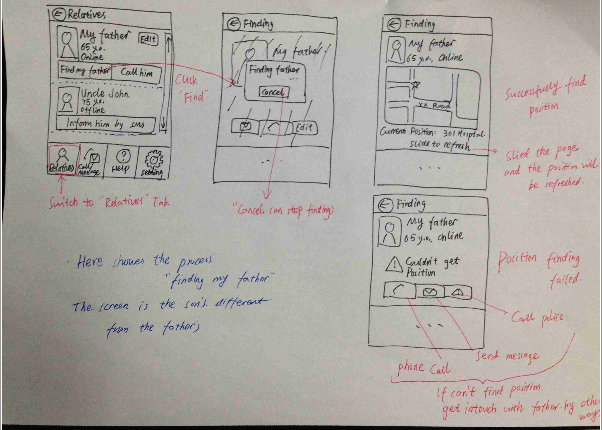 Relatives
My father
65 y.o.
Online
Edit
Find my father
Call him
Uncle John
75 y.o.
offline
Inform him by sms
Relatives
Call
message
Help
Setting
Switch to "Relatives" Tab
Click
"Find"
Finding
My father
Finding father
Cancel
Edit
...
"Cancel" can stop finding
Finding
My father
65 y.o. Online
xx Road
Current Position: 301 Hospital
slide to refresh
...
Successfully find
position
Slied the page,
and the position will
be refreshed.
Finding
My father
65 y.o. Online
Couldn't get
Position
...
Position finding
failed.
Call police
Send message
phone Call
If can't find position
get in touch with father by other
ways
Here shows the process
"finding my father"
The screen is the son's. different
from the father's